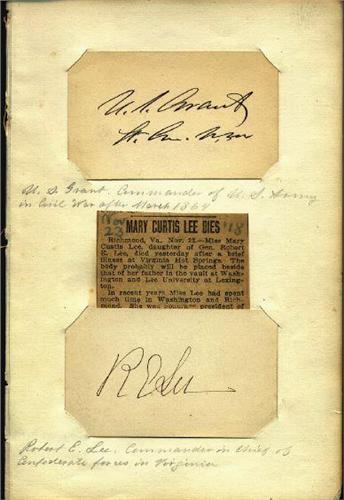 U.S. Grant
Lt. Gen. U.S.A
U. S. Grant. Commander of U. S. Army
in Civil War after March 1864
Nov 23 '18
MARY CURTIS LEE DIES
Richmond, Va., Nov. 22.—Miss Mary
Curtis Lee, daughter of Gen. Robert
E. Lee, died yesterday after a brief
illness at Virginia Hot Springs. The
body probably will be placed beside
that of her father in the vault at Wash-
ington and Lee University at Lexing-
ton.
In recent years Miss Lee had spent
much time in Washington and Rich-
mond. She was president of
R E Lee
Robert E. Lee. Commander in Chief of
Confederate forces in Virginia